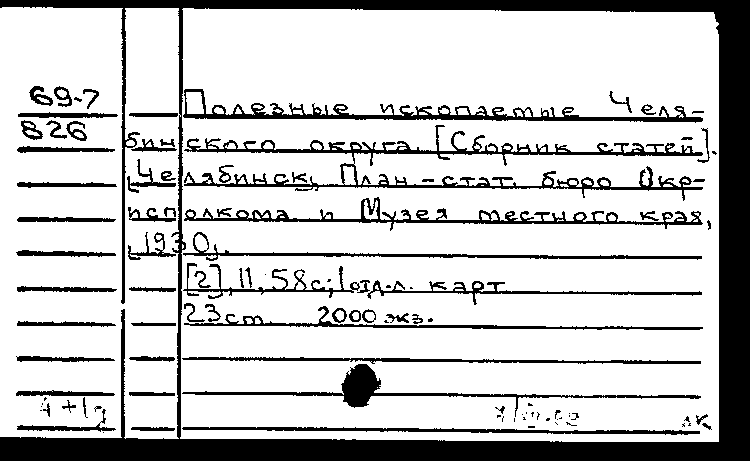 69-7
826
Полезные ископаемые Челя-
бинского округа. [Сборник статей].
[Челябинск], План.-стат. бюро Окр-
исполкома и Музея местного края,
[1930].
[2], II, 58с; 1 отд. л. карт
23см 2000 экз.
4+1g
лк